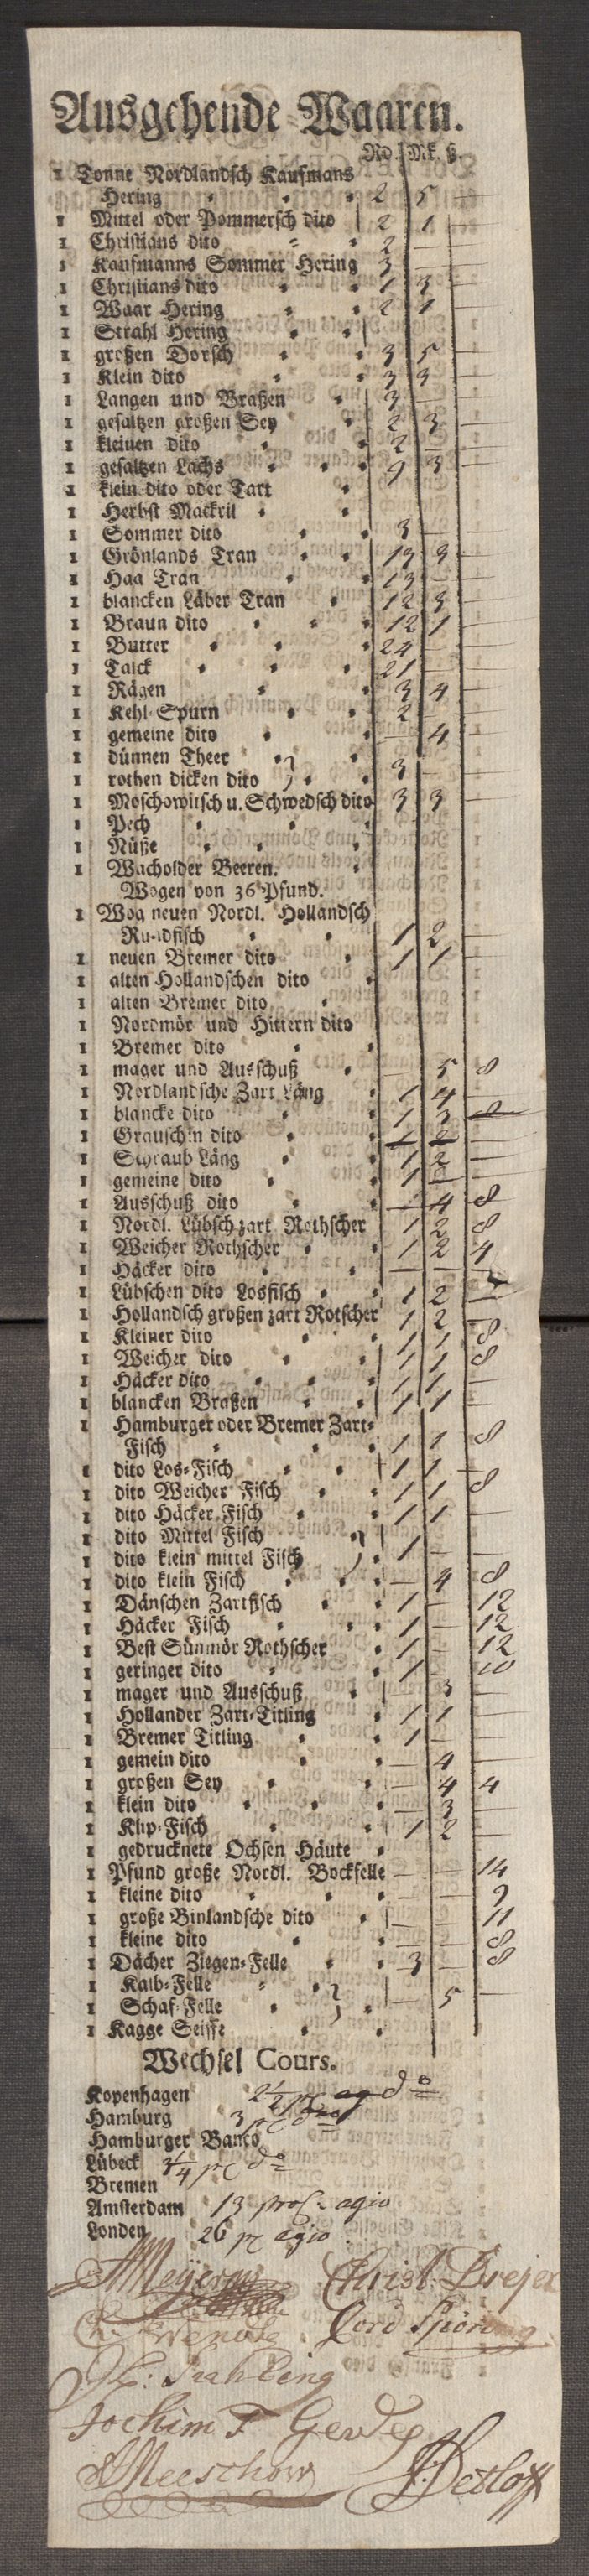 Ausgehende Waaren.
Rd. Mk. ß.
1 Tonne Nordlandsch Kaufmans
Hering 2 5 —
1 Mittel oder Pommersch dito 2 1 —
1 Christians dito 2 — —
1 Kaufmanns Sommer Hering 3 — —
1 Christians dito 1 3 —
1 Waar Hering 2 1 —
1 Strahl Hering
1 großen Dorsch 3 5 —
1 Klein dito 3 3 —
1 Langen und Braßen 3 — —
1 gesaltzen großen Sey 2 3 —
1 kleinen dito 2 — —
1 gesaltzen Lachs 9 3 —
1 klein dito oder Tart
1 Herbst Mackril
1 Sommer dito 3 — —
1 Grönlands Tran 13 3 —
1 Haa Tran 13 — —
1 blancken Läber Tran 12 3 —
1 Braun dito 12 1 —
1 Butter 24 — —
1 Talck 21 — —
1 Rägen 3 4 —
1 Kehl-Spurn 2 — —
1 gemeine dito — 4 —
1 dünnen Theer
1 rothen dicken dito 3 — —
1 Moschowitsch u. Schwedsch dito 3 3 —
1 Pech
1 Nüße
1 Wacholder Beeren.
Wogen von 36 Pfund.
1 Wog neuen Nordl. Hollandsch
Rundfisch 1 2 —
1 neuen Bremer dito 1 1 —
1 alten Hollandschen dito
1 alten Bremer dito
1 Nordmör und Hittern dito
1 Bremer dito
1 mager und Ausschuß — 5 8
1 Nordlandsche Zart Läng 1 4 —
1 blancke dito 1 3 8
1 Grauschin dito 1 2 —
1 Schraub Läng 1 2 —
1 gemeine dito 1 — —
1 Ausschuß dito — 4 8
1 Nordl. Lübsch zart Rothscher 1 2 8
1 Weicher Rothscher 1 2 4
1 Häcker dito — — —
1 Lübschen dito Losfisch 1 2 —
1 Hollandsch großen zart Rotscher 1 2 —
1 Kleiner dito 1 1 8
1 Weicher dito 1 1 8
1 Häcker dito 1 1 —
1 blancken Braßen 1 1 —
1 Hamburger oder Bremer Zart-
Fisch 1 1 8
1 dito Los-Fisch 1 1 —
1 dito Weicher Fisch 1 1 8
1 dito Häcker Fisch 1 1 —
1 dito Mittel Fisch
1 dito klein mittel Fisch 1 — —
1 dito klein Fisch — 4 8
1 Dänschen Zartfisch 1 — 12
1 Häcker Fisch 1 — 12
1 Best Sünmör Rothscher 1 — 12
1 geringer dito 1 — 10
1 mager und Ausschuß 3 —
1 Hollander Zart-Titling 1 1 —
1 Bremer Titling 1 — —
1 gemein dito — 4 —
1 großen Sey — 4 4
1 klein dito — 3 —
1 Klip-Fisch 1 2 —
1 gedrucknete Ochsen Häute
1 Pfund große Nordl. Bockfelle — — 14
1 kleine dito — — 9
1 große Binlandsche dito — — 11
1 kleine dito — — 8
1 Dächer Ziegen-Felle 3 — 8
1 Kalb-Felle
1 Schaf-Felle — 5 —
1 Kagge Seiffe
Wechsel Cours.
Kopenhagen 2½ pC ag do
Hamburg 3 pC do
Hamburger Banco
Lübeck 3/4 pC do
Bremen
Amsterdam 13 proC agio
Londen 26 pC agio
Meyer Christ. Dreyer
Cord
Jochim F Gerdes
Meeschow Detloff